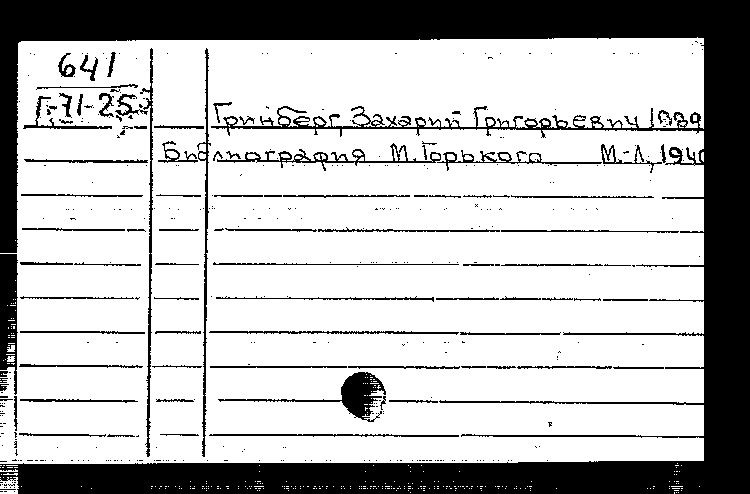 641
Г-71-253
Гринберг, Захарий Григорьевич 1889
Библиография М. Горького М.-Л., 1940